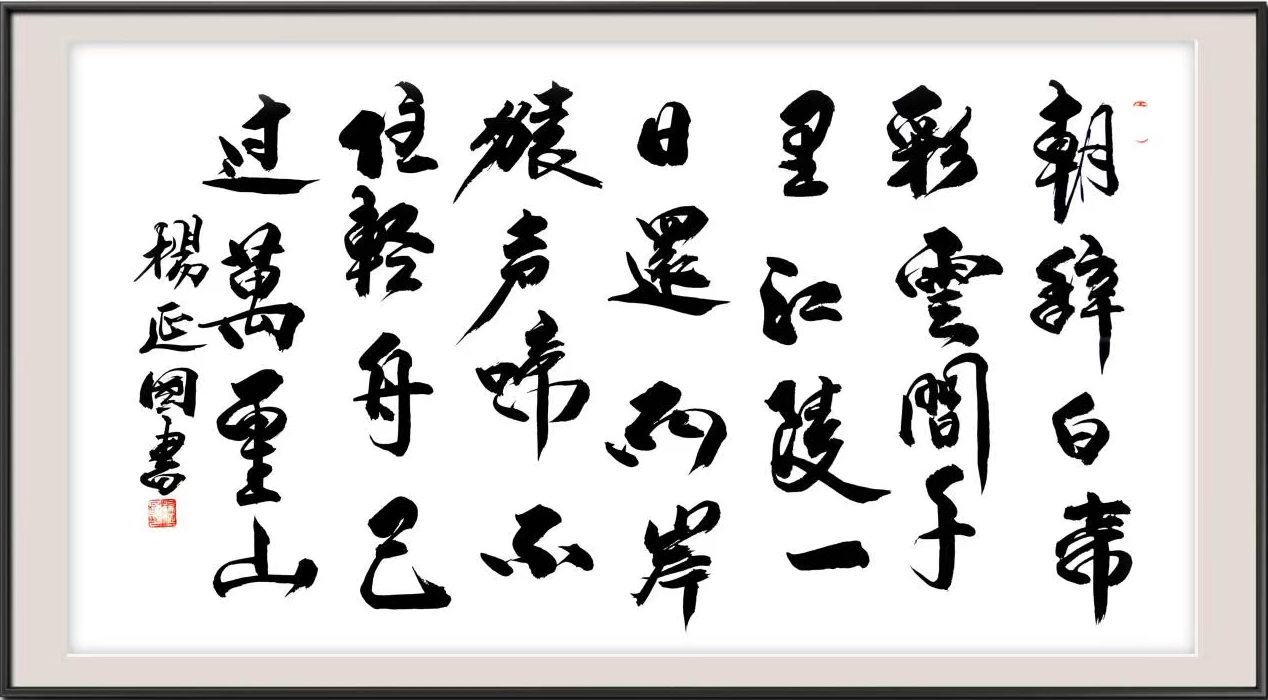 朝辭白帝
彩雲間千
里江陵一
日還两岸
猿声啼不
住輕舟已
过萬重山
楊延國書